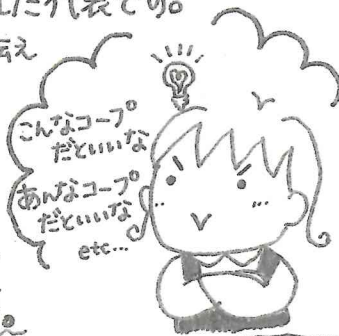 代表です。
伝え
こんなコープ
だといいな
あんなコープ
だといいな
etc...